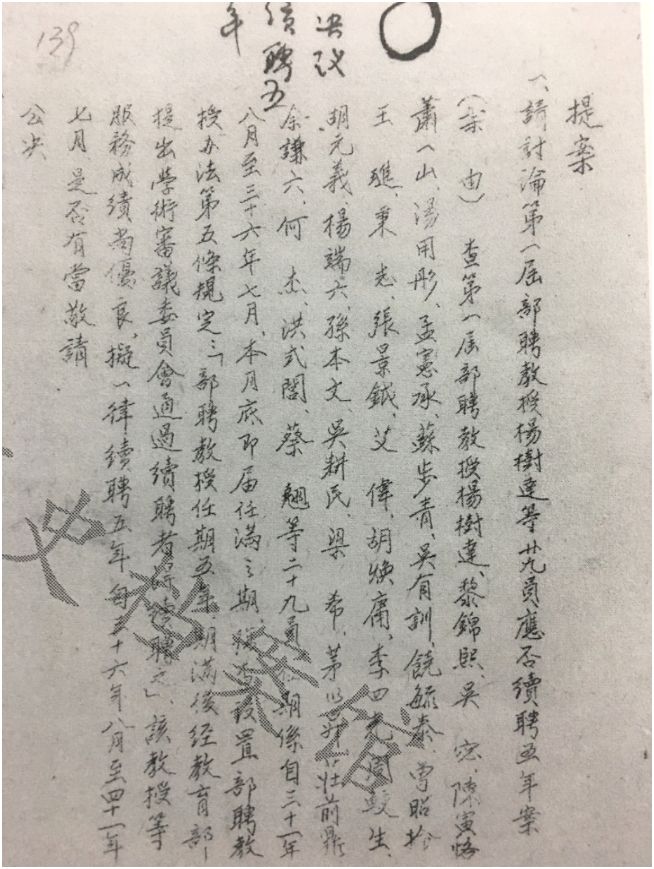 139
决议
續聘五
年
提案
一、請討論第一屆部聘教授楊樹達等廿九員應否續聘五年案
（案　由）查第一屆部聘教授楊樹達、黎錦熙、吳　宓、陳寅恪
蕭一山、湯用彤、孟憲承、蘇步青、吳有訓、饒毓泰、曾昭掄
王　璡、秉　志、張景鉞、艾　偉、胡煥庸、李四光、周鯁生、
胡元義、楊端六、孫本文、吳耕民、梁　希、茅以昇、莊前鼎
余謙六、何　杰、洪式閭、蔡　翹等二十九員任期係自三十一年
八月至三十六年七月，本月底即屆任滿之期，設置部聘教
授办法第五條規定：「部聘教授任期五年，期滿後經教育部
提出學術審議委員會通過續聘者得續聘之」，該教授等
服務成績尚優良，擬一律續聘五年，自三十六年八月至四十一年
七月，是否有當敬請
公決